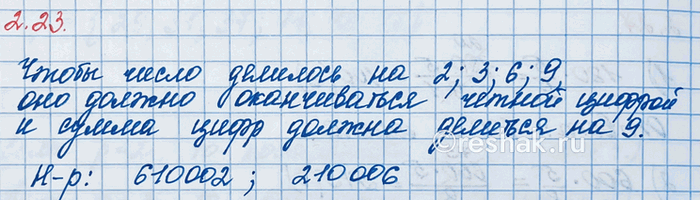 2.23.
Чтобы число делилось на 2; 3; 6; 9,
оно должно оканчиваться четной цифрой
и сумма цифр должна делиться на 9.
Н-р: 610002; 210006
reshak.ru